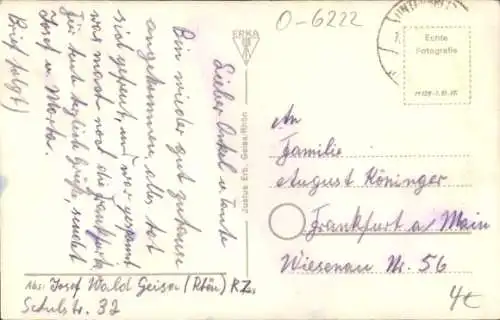 O-6222
ERKA
Echte
Fotografie
Justus Erb, Geisa/Rhön
Lieber Onkel u. Tante
Bin wieder gut zuhause
angekommen, alles hat
sich gefreut, und war gespannt
was macht noch die Frankfurter
Für heut herzlich Grüße, sendet
Josef u. Marta.
Brief folgt)
An
Familie
August Köninger
Frankfurt a/Main
Wiesenau Nr. 56
Abs: Josef Wald Geisa (Rhön) RZ.
Schulstr. 32
4€